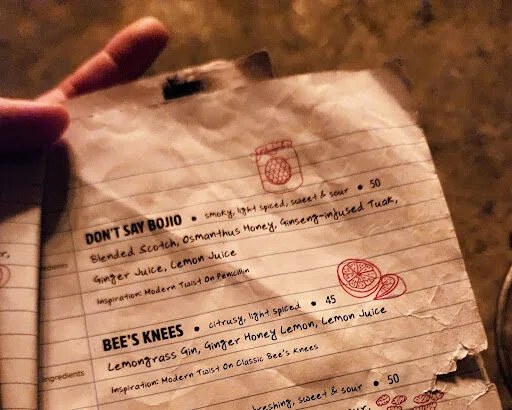 DON'T SAY BOJIO • smoky, light spiced, sweet & sour • 50
Blended Scotch, Osmanthus Honey, Ginseng-infused Tuak,
Ginger Juice, Lemon Juice
Inspiration: Modern Twist On Penicillin
BEE'S KNEES • citrusy, light spiced • 45
Lemongrass Gin, Ginger Honey Lemon, Lemon Juice
Ingredients
Inspiration: Modern Twist On Classic Bee's Knees
sweet & sour • 50